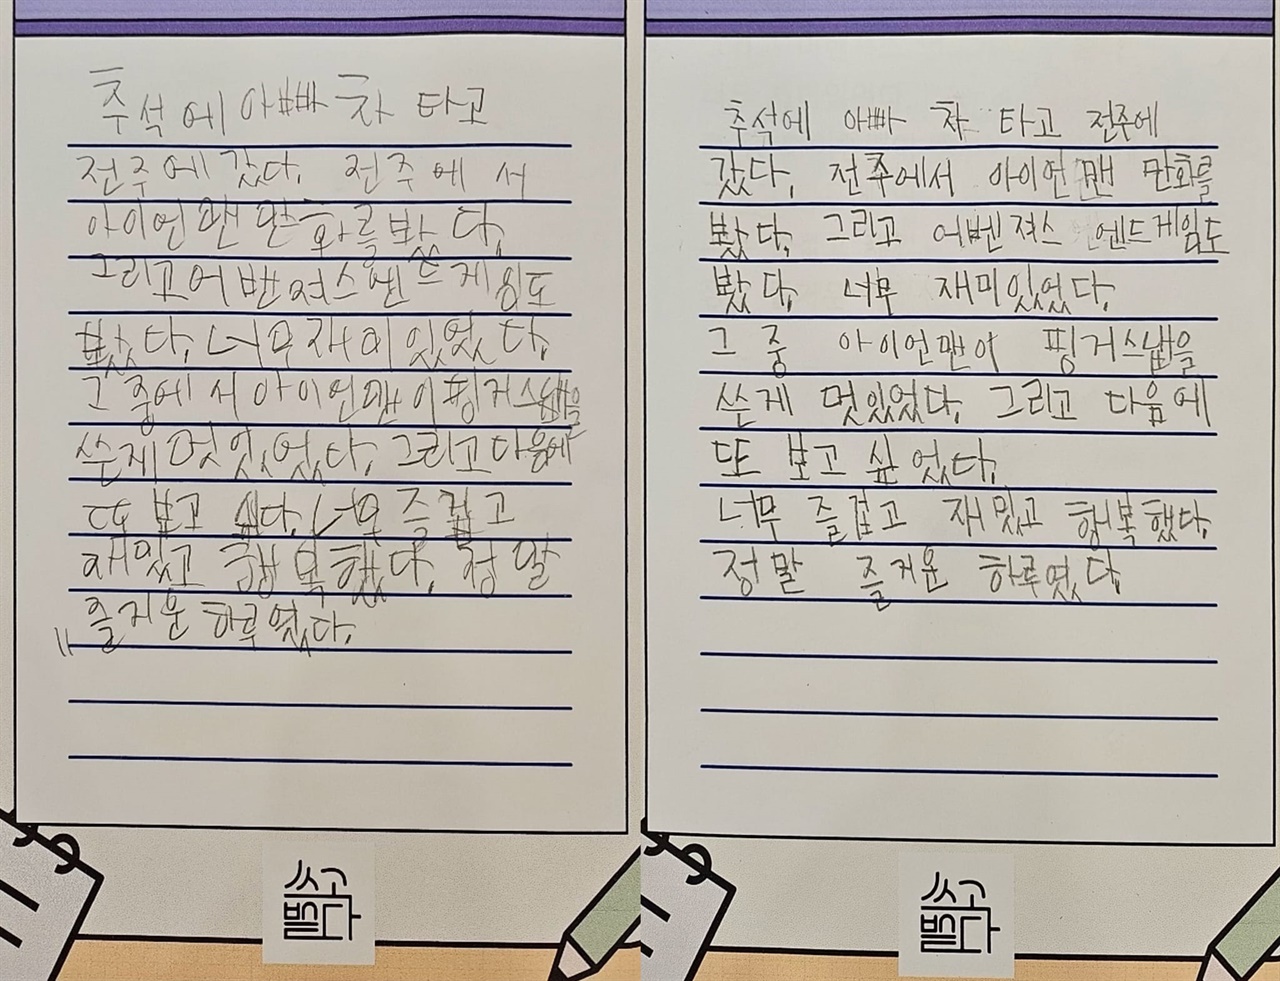 추석에 아빠 차 타고
전주에 갔다. 전주에서
아이언맨 만화를 봤다.
그리고 어벤져스 엔드게임도
봤다. 너무 재미있었다.
그 중에서 아이언맨이 핑거스냅을
쓴게 멋있었다. 그리고 다음에
또 보고 싶다. 너무 즐겁고
재밌고 행복했다. 정말
즐거운 하루였다.
쓰고
뱉다
추석에 아빠 차 타고 전주에
갔다. 전주에서 아이언맨 만화를
봤다. 그리고 어벤져스 엔드게임도
봤다. 너무 재미있었다.
그 중 아이언맨이 핑거스냅을
쓴게 멋있었다. 그리고 다음에
또 보고 싶었다.
너무 즐겁고 재밌고 행복했다.
정말 즐거운 하루였다
쓰고
뱉다